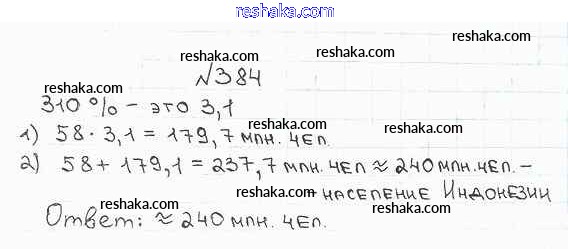 reshaka.com
reshaka.com
№384
reshaka.com reshaka.com
310 % – это 3,1
1) 58 · 3,1 = 179,7 млн. чел.
reshaka.com reshaka.com
2) 58 + 179,1 = 237,7 млн. чел ≈ 240 млн. чел. –
reshaka.com reshaka.com
– население Индонезии
reshaka.com
Ответ: ≈ 240 млн. чел.
reshaka.com